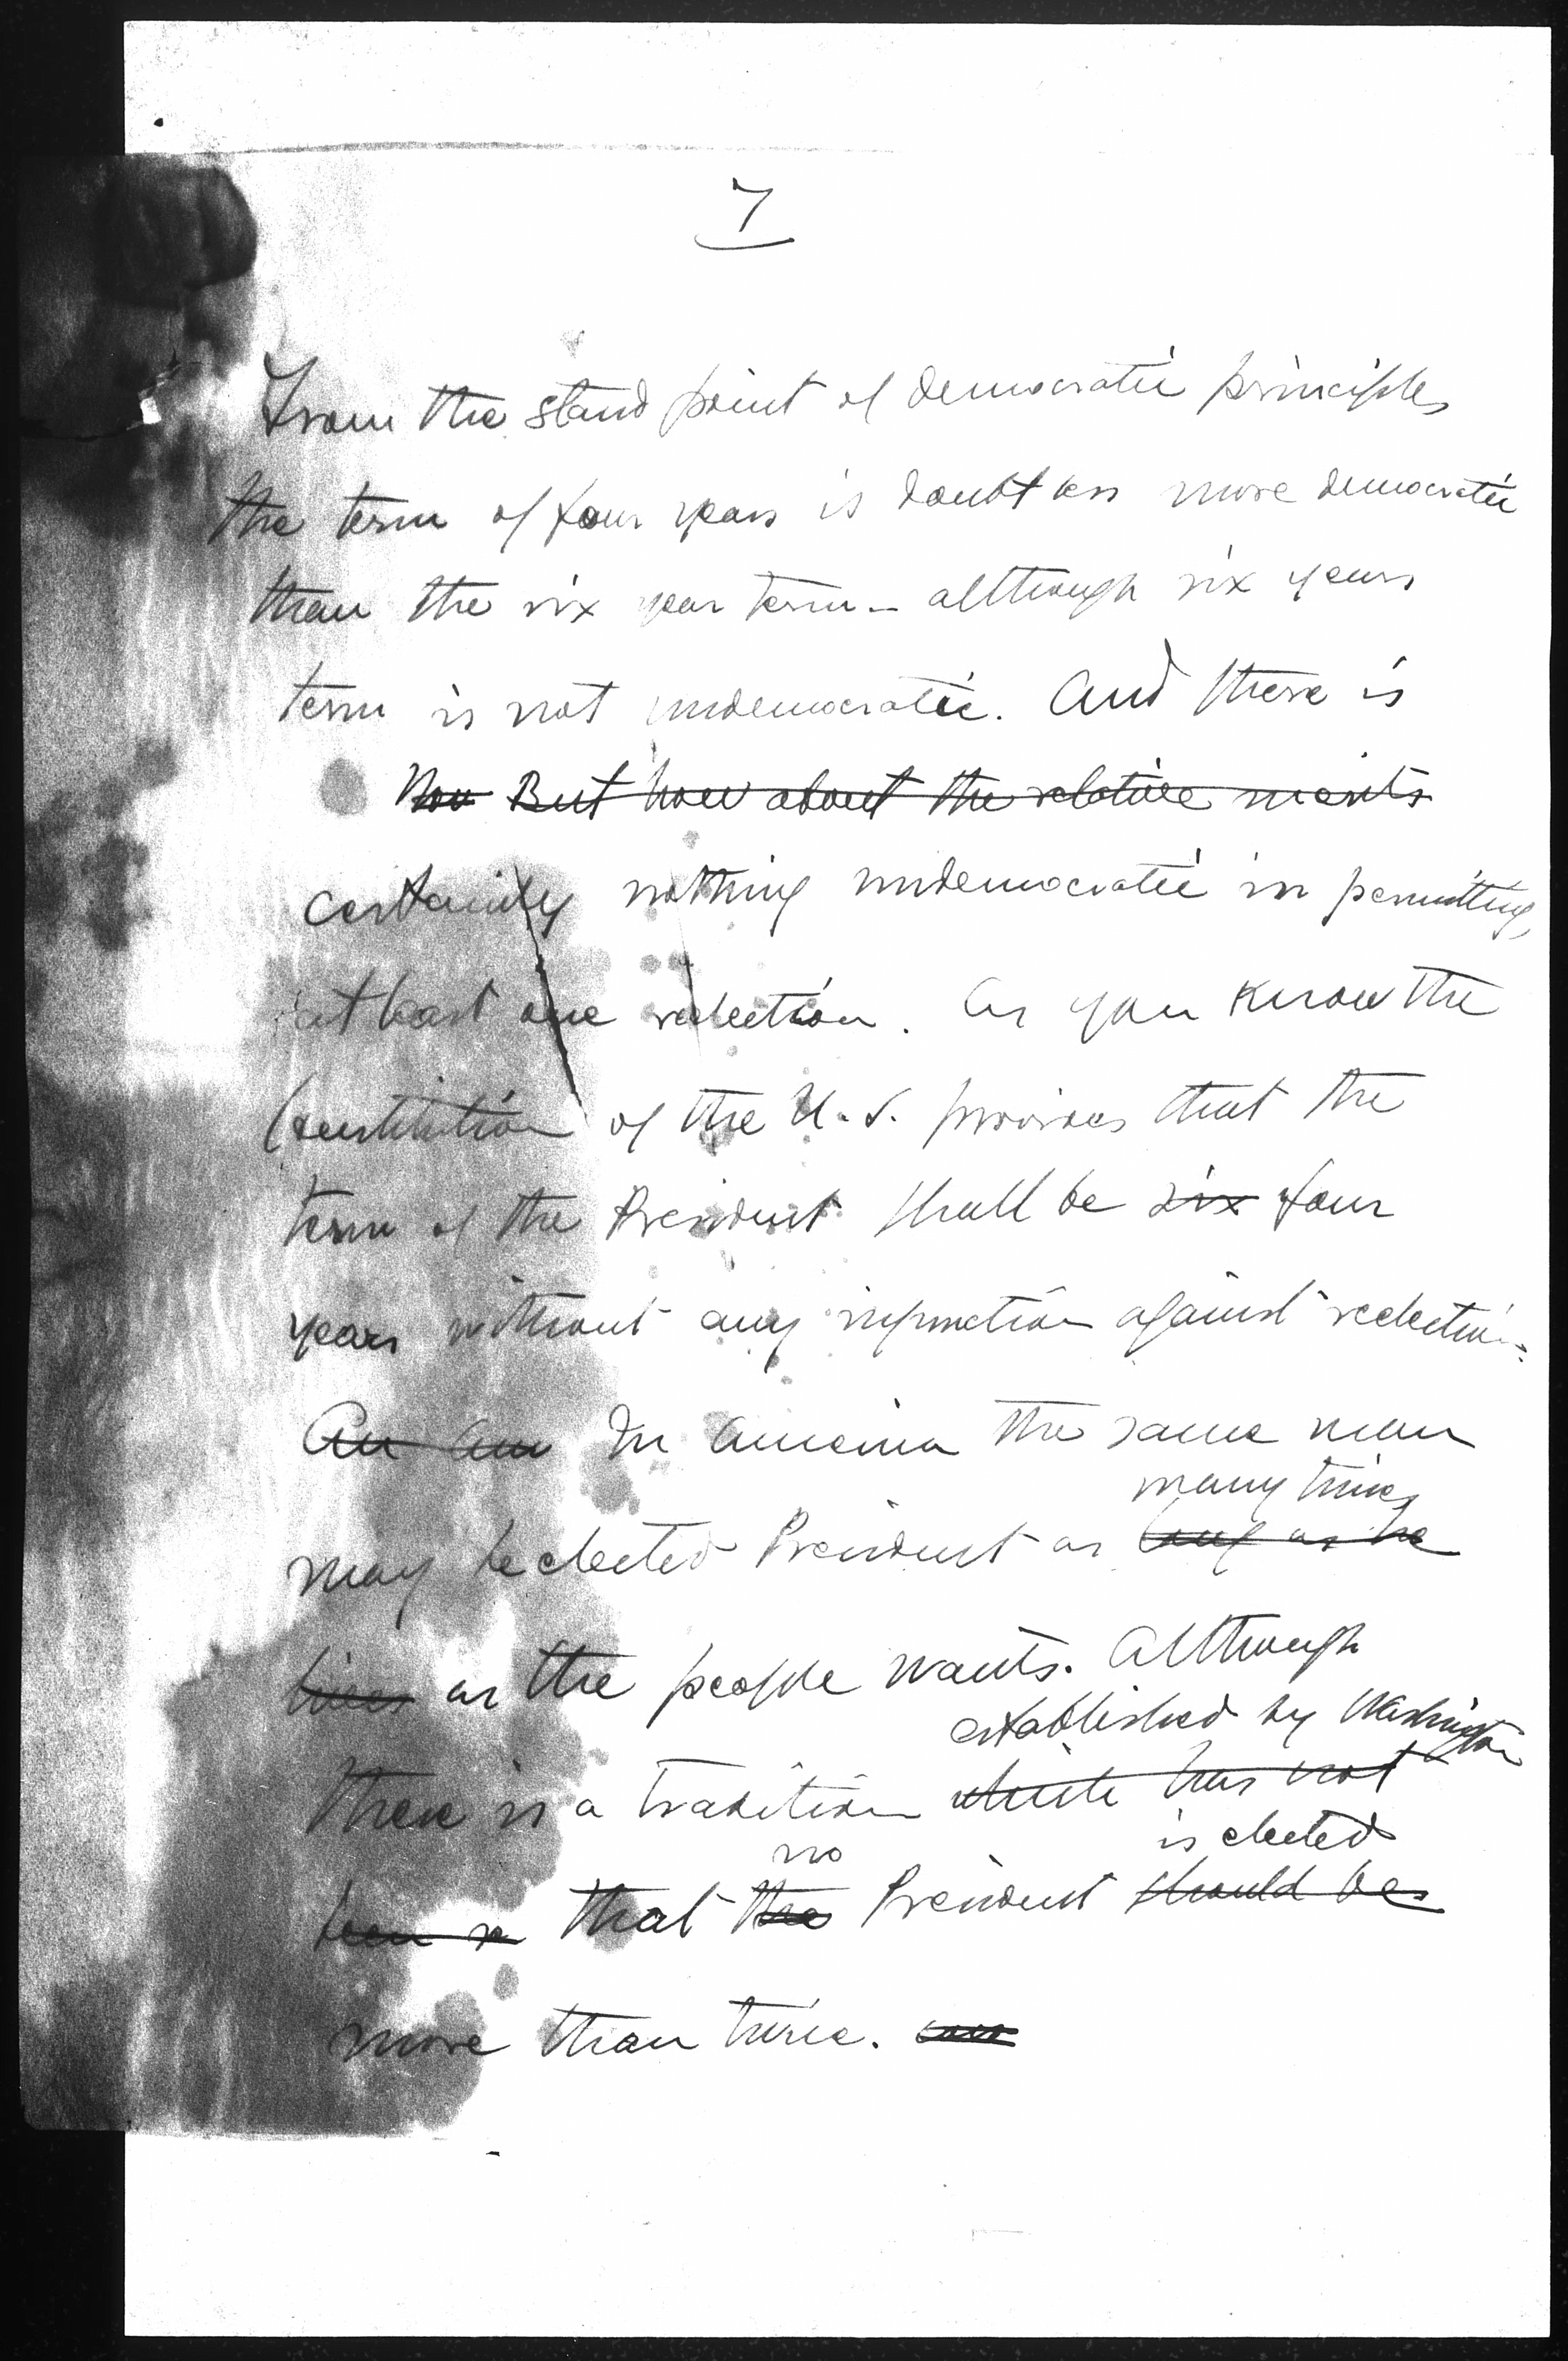 7
From the stand point of democratic principles
the term of four years is doubtless more democratic
than the six year term - although six years
term is not undemocratic. And there is
Now But how about the relative merits
certainly nothing undemocratic in permitting
at least one reelection. As you know the
Constitution of the U.S. provides that the
term of the President shall be six four
years without any injunction against reelection.
An Am In America the same man
many times
may be elected President as long as he
lives as the people wants. Although
established by Washington
there is a tradition which has not
no is elected
been that the President should be
more than twice.